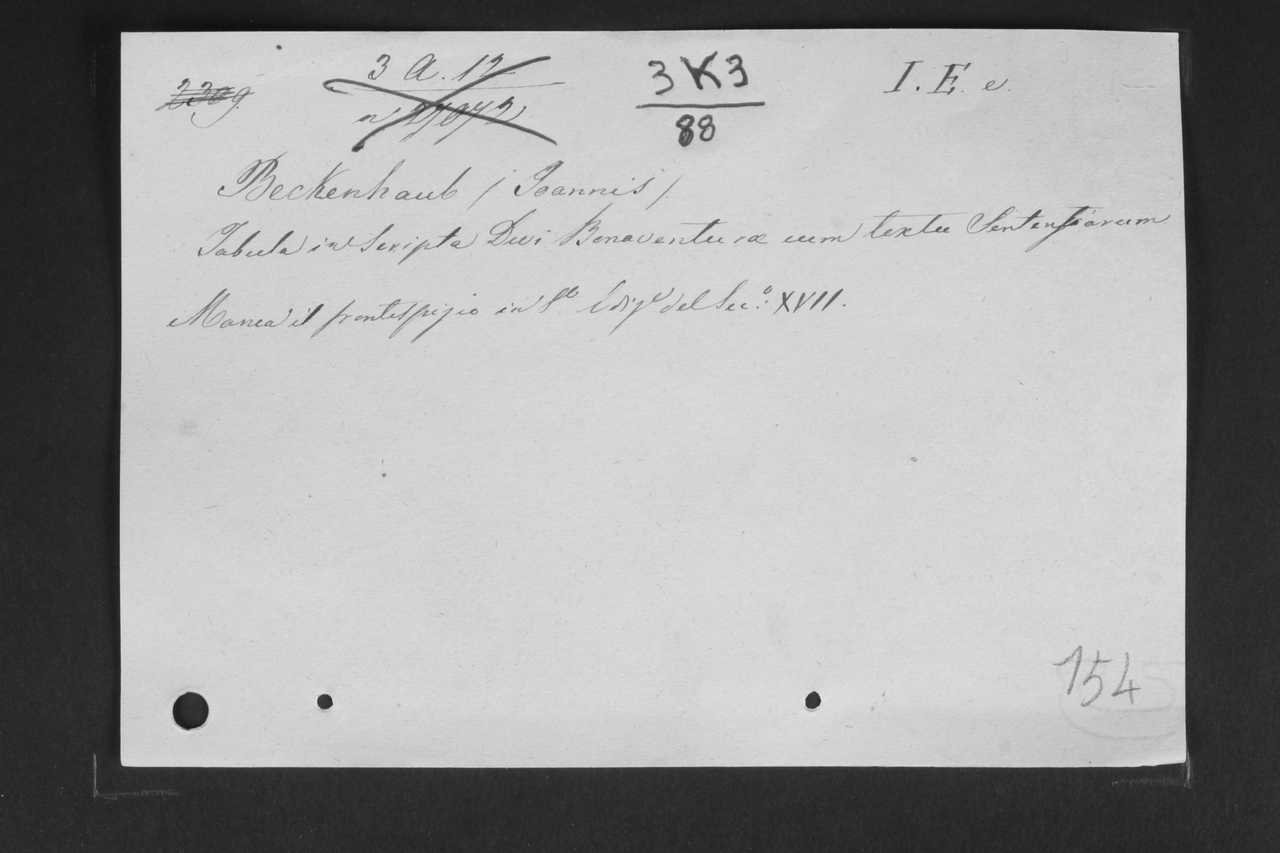 3 A. 12 3 K 3 I. E. e.
88
Beckenhaub (Joannis)
Tabula in Scripta Divi Bonaventuræ cum textu Sententiarum
Manca il frontespizio in 8° Ediz.e del Sec.° XVII.
154